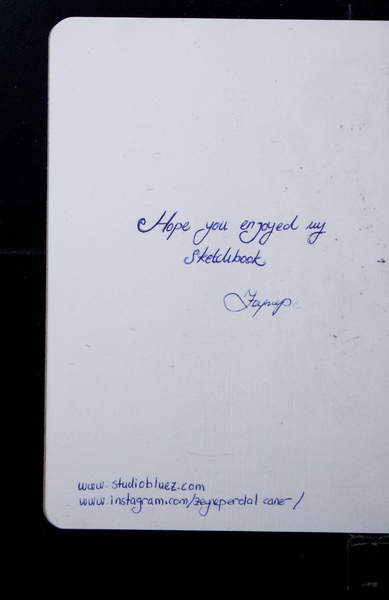 Hope you enjoyed my
Sketchbook
Zeynep
www.studiobluez.com
www.instagram.com/zeyneperdal caner/